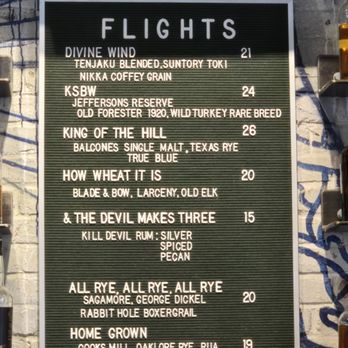 FLIGHTS
DIVINE WIND 21
TENJAKU BLENDED, SUNTORY TOKI
NIKKA COFFEY GRAIN
KSBW 24
JEFFERSONS RESERVE
OLD FORESTER 1920, WILD TURKEY RARE BREED
KING OF THE HILL 26
BALCONES SINGLE MALT, TEXAS RYE
TRUE BLUE
HOW WHEAT IT IS 20
BLADE & BOW, LARCENY, OLD ELK
& THE DEVIL MAKES THREE 15
KILL DEVIL RUM: SILVER
SPICED
PECAN
ALL RYE, ALL RYE, ALL RYE
SAGAMORE, GEORGE DICKEL 20
RABBIT HOLE BOXERGRAIL
HOME GROWN 19
COOKS MILL, OAKLORE RYE, RUA